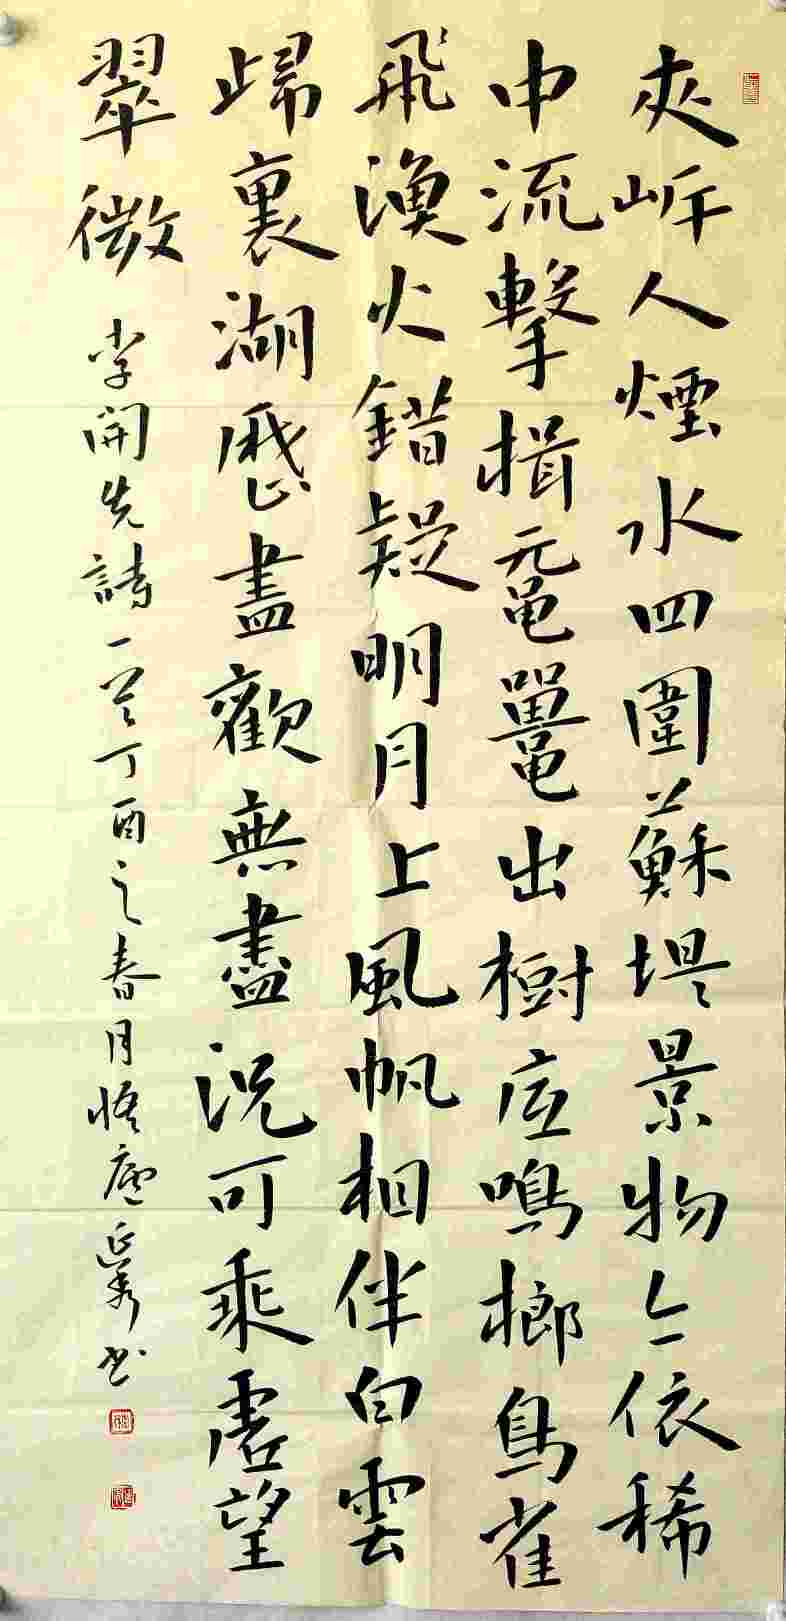 夾岸人煙水四圍蘇堤景物今依稀
中流擊楫黿鼉出樹底鳴榔鳥雀
飛漁火錯疑明月上風帆相伴白雲
歸裏湖歷盡歡無盡況可乘虛望
翠微
李開先詩一首丁酉之春月悟廬延書